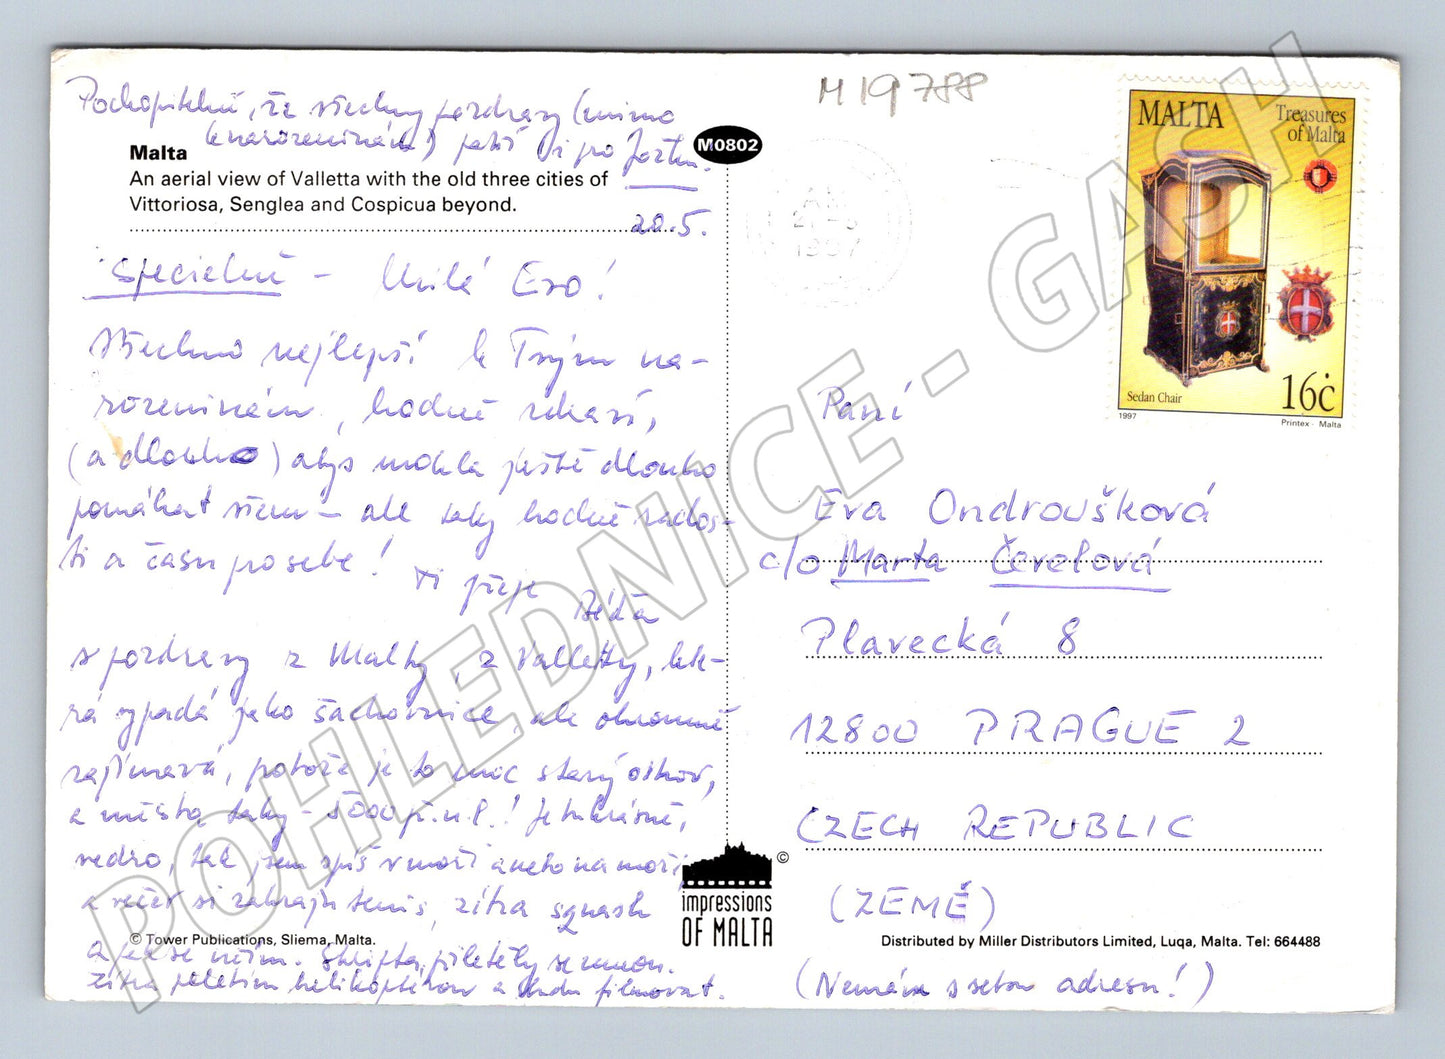 Pochopitelně, že všechny pozdravy (mimo
k narozeninám) patří i pro
20.5.
Malta
An aerial view of Valletta with the old three cities of
Vittoriosa, Senglea and Cospicua beyond.
M0802
Speciálně – Milá Evo!
Všechno nejlepší k Tvým na-
rozeninám, hodně zdraví,
(a dlouho) abys mohla ještě dlouho
pomáhat všem – ale taky hodně rados-
ti a času pro sebe!
Ti přeje
Béďa
s pozdravy z Malty, z Valletty, kte-
rá vypadá jako šachovnice, ale ohromně
zajímavá, protože je to moc starý ostrov,
a města taky – 5000 př.n.l.! Je tu krásně,
vedro, tak jsem spíš v moři anebo na moři,
a večer si zahraju tenis, zítra squash
a se
přiletěly se mnou.
Zítra poletím helikoptérou a budu filmovat.
© Tower Publications, Sliema, Malta.
impressions
OF MALTA
©
M19788
21-5
1997
MALTA
Treasures
of Malta
Sedan Chair
16c
1997
Printex - Malta
Paní
Eva Ondroušková
c/o Marta
Plavecká 8
12800 PRAGUE 2
CZECH REPUBLIC
(ZEMĚ)
Distributed by Miller Distributors Limited, Luqa, Malta. Tel: 664488
(Nemám s sebou adresu!)
POHLEDNICE - GASH